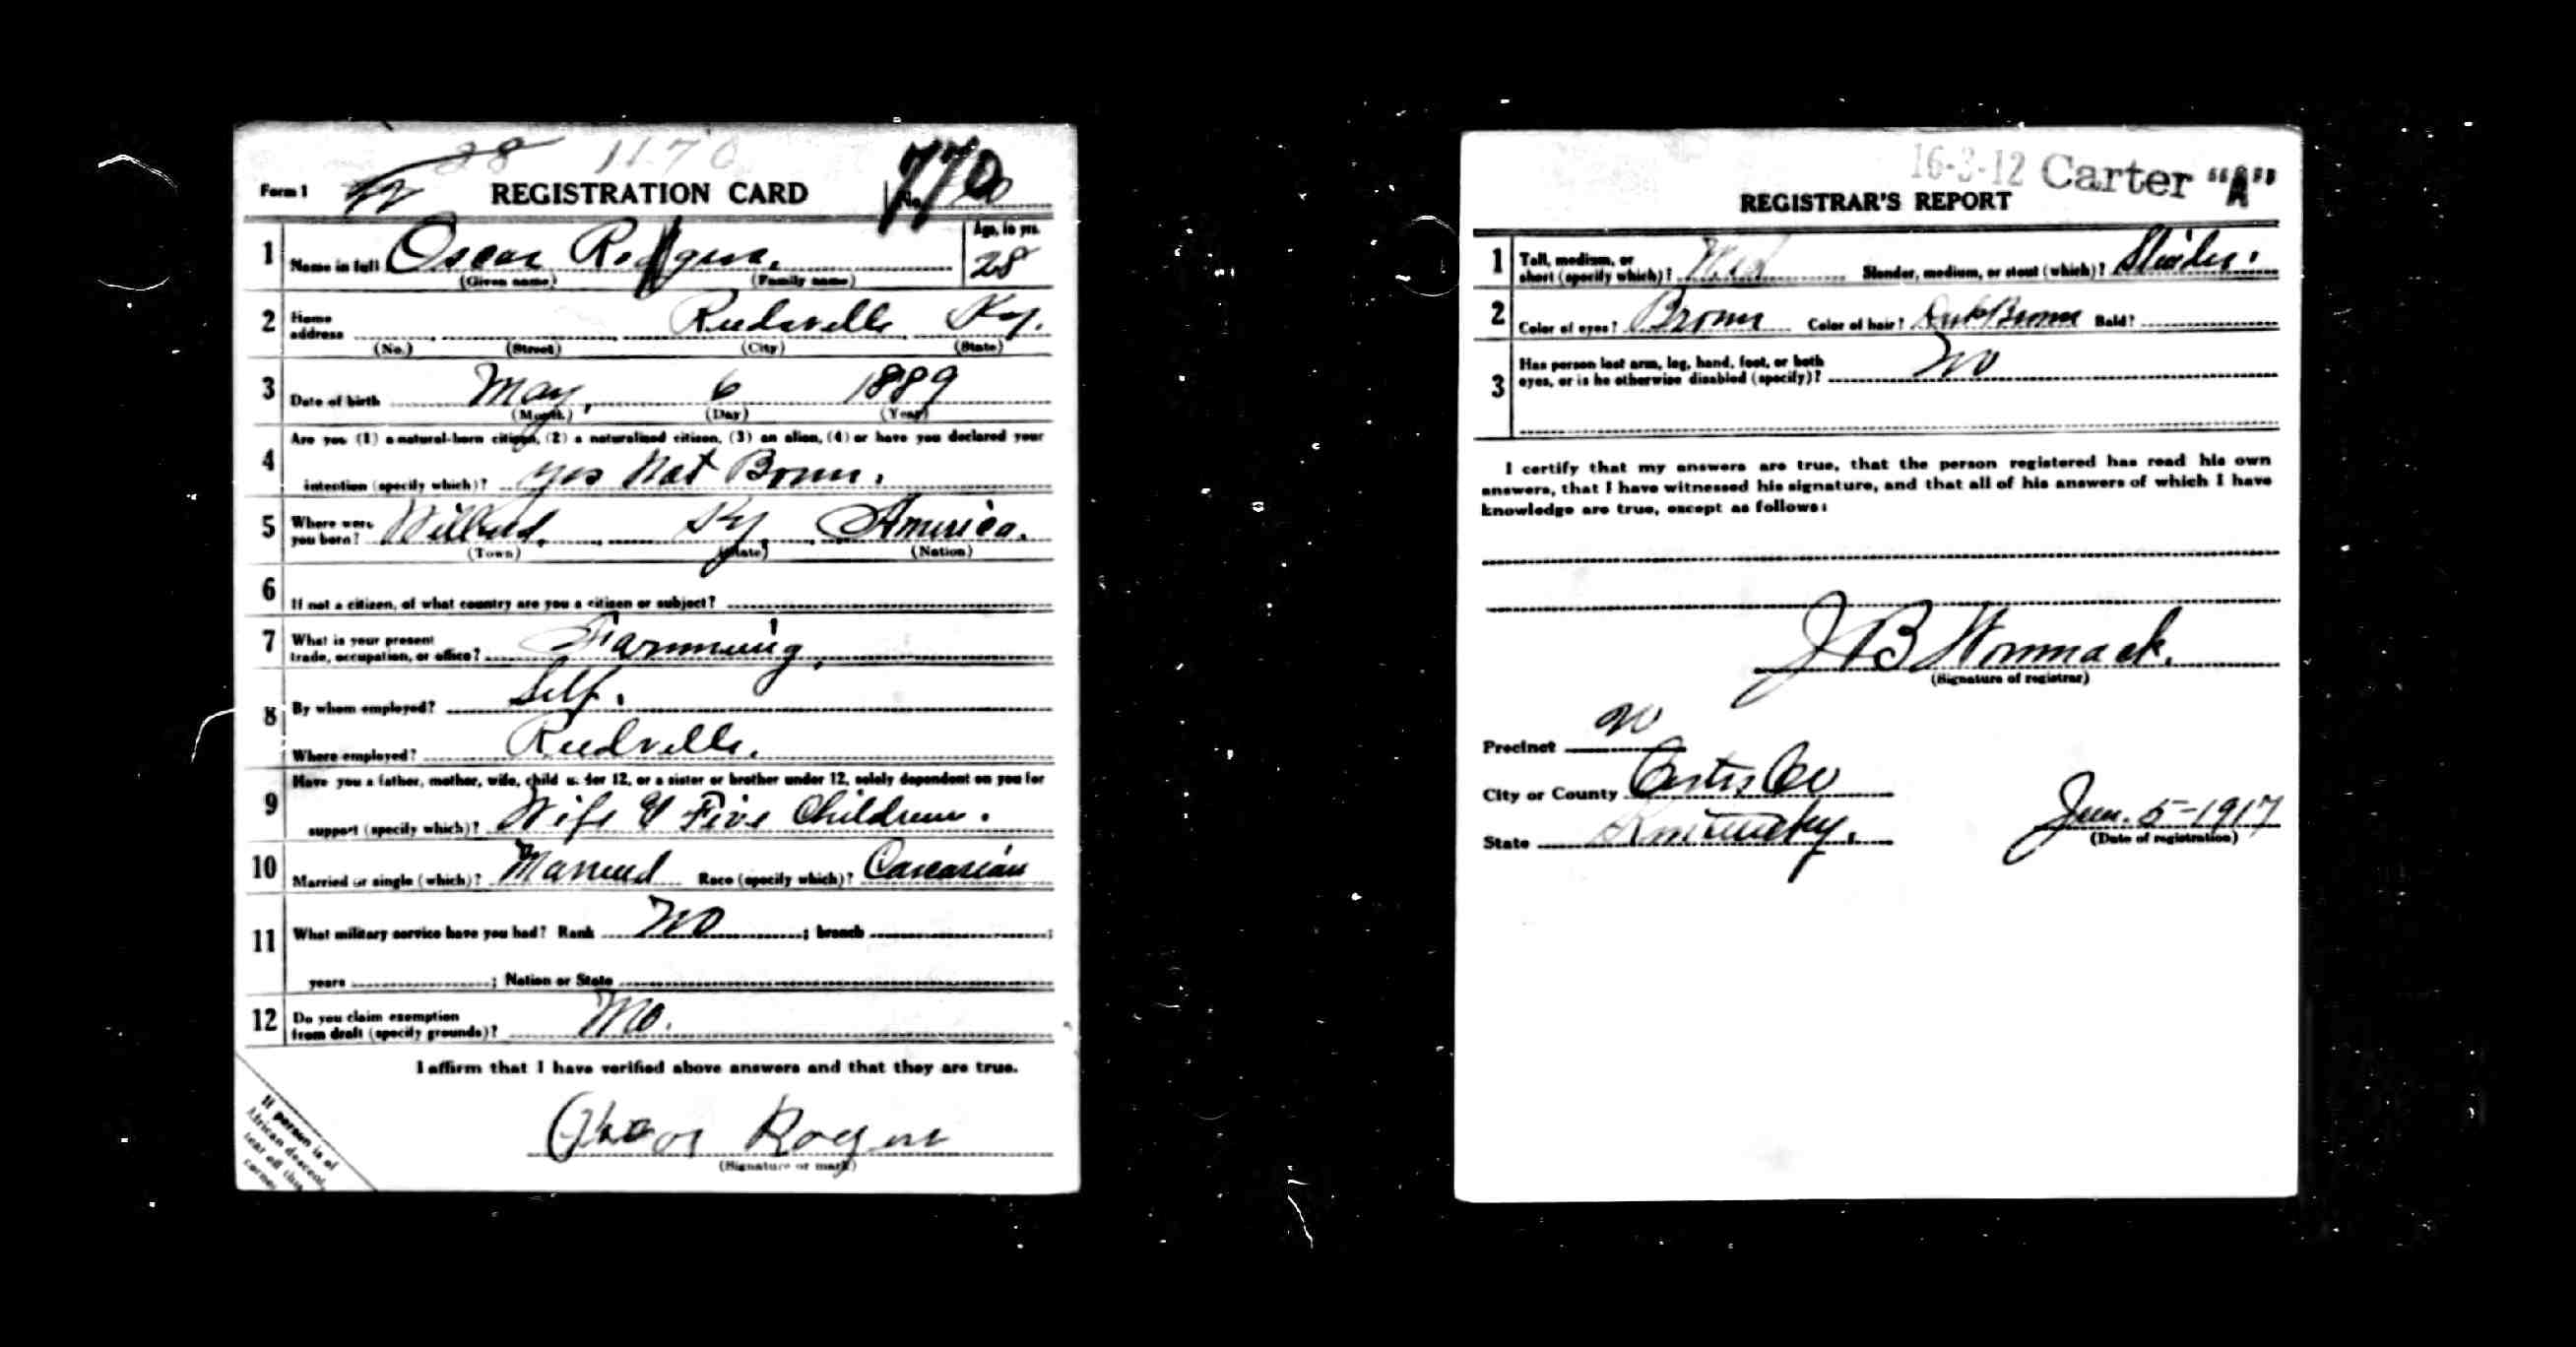 28 1170
Form 1 REGISTRATION CARD No. 770
1 Name in full Oscar Rodgers. Age, in yrs. 28
(Given name) (Family name)
2 Home address Reedville Ky.
(No.) (Street) (City) (State)
3 Date of birth May, 6 1889
(Month) (Day) (Year)
4 Are you (1) a natural-born citizen, (2) a naturalized citizen, (3) an alien, (4) or have you declared your
intention (specify which)? yes Nat Born.
5 Where were you born? Willard, Ky, America.
(Town) (State) (Nation)
6 If not a citizen, of what country are you a citizen or subject?
7 What is your present
trade, occupation, or office? Farmming,
8 By whom employed? Self.
Where employed? Reedville.
9 Have you a father, mother, wife, child under 12, or a sister or brother under 12, solely dependent on you for
support (specify which)? Wife & Five Children.
10 Married or single (which)? Married Race (specify which)? Caucasian
11 What military service have you had? Rank No ; branch ;
years ; Nation or State
12 Do you claim exemption
from draft (specify grounds)? No.
I affirm that I have verified above answers and that they are true.
Oscar Rogers
(Signature or mark)
If person is of
African descent,
tear off this
corner
16-3-12 Carter "A"
REGISTRAR'S REPORT
1 Tall, medium, or
short (specify which)? Med Slender, medium, or stout (which)? Slender.
2 Color of eyes? Brown Color of hair? Dark Brown Bald?
3 Has person lost arm, leg, hand, foot, or both
eyes, or is he otherwise disabled (specify)? No
I certify that my answers are true, that the person registered has read his own
answers, that I have witnessed his signature, and that all of his answers of which I have
knowledge are true, except as follows:
J B Wommack.
(Signature of registrar)
Precinct
City or County Carter Co
State Kentucky.
Jun. 5-1917
(Date of registration)